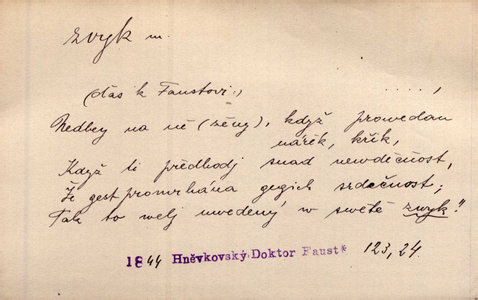 zvyk m.
(ďas k Faustovi:) . . . . . ,
Nedbey na ně (zěny), když prowedau
nářek, křik,
Když ti předhodj snad newděčnost,
Že gest promrhána gegich srdečnost;
Tak to welj uwedený w swětě zwyk!"
1844 Hněvkovský, Doktor Faust* 123,24.